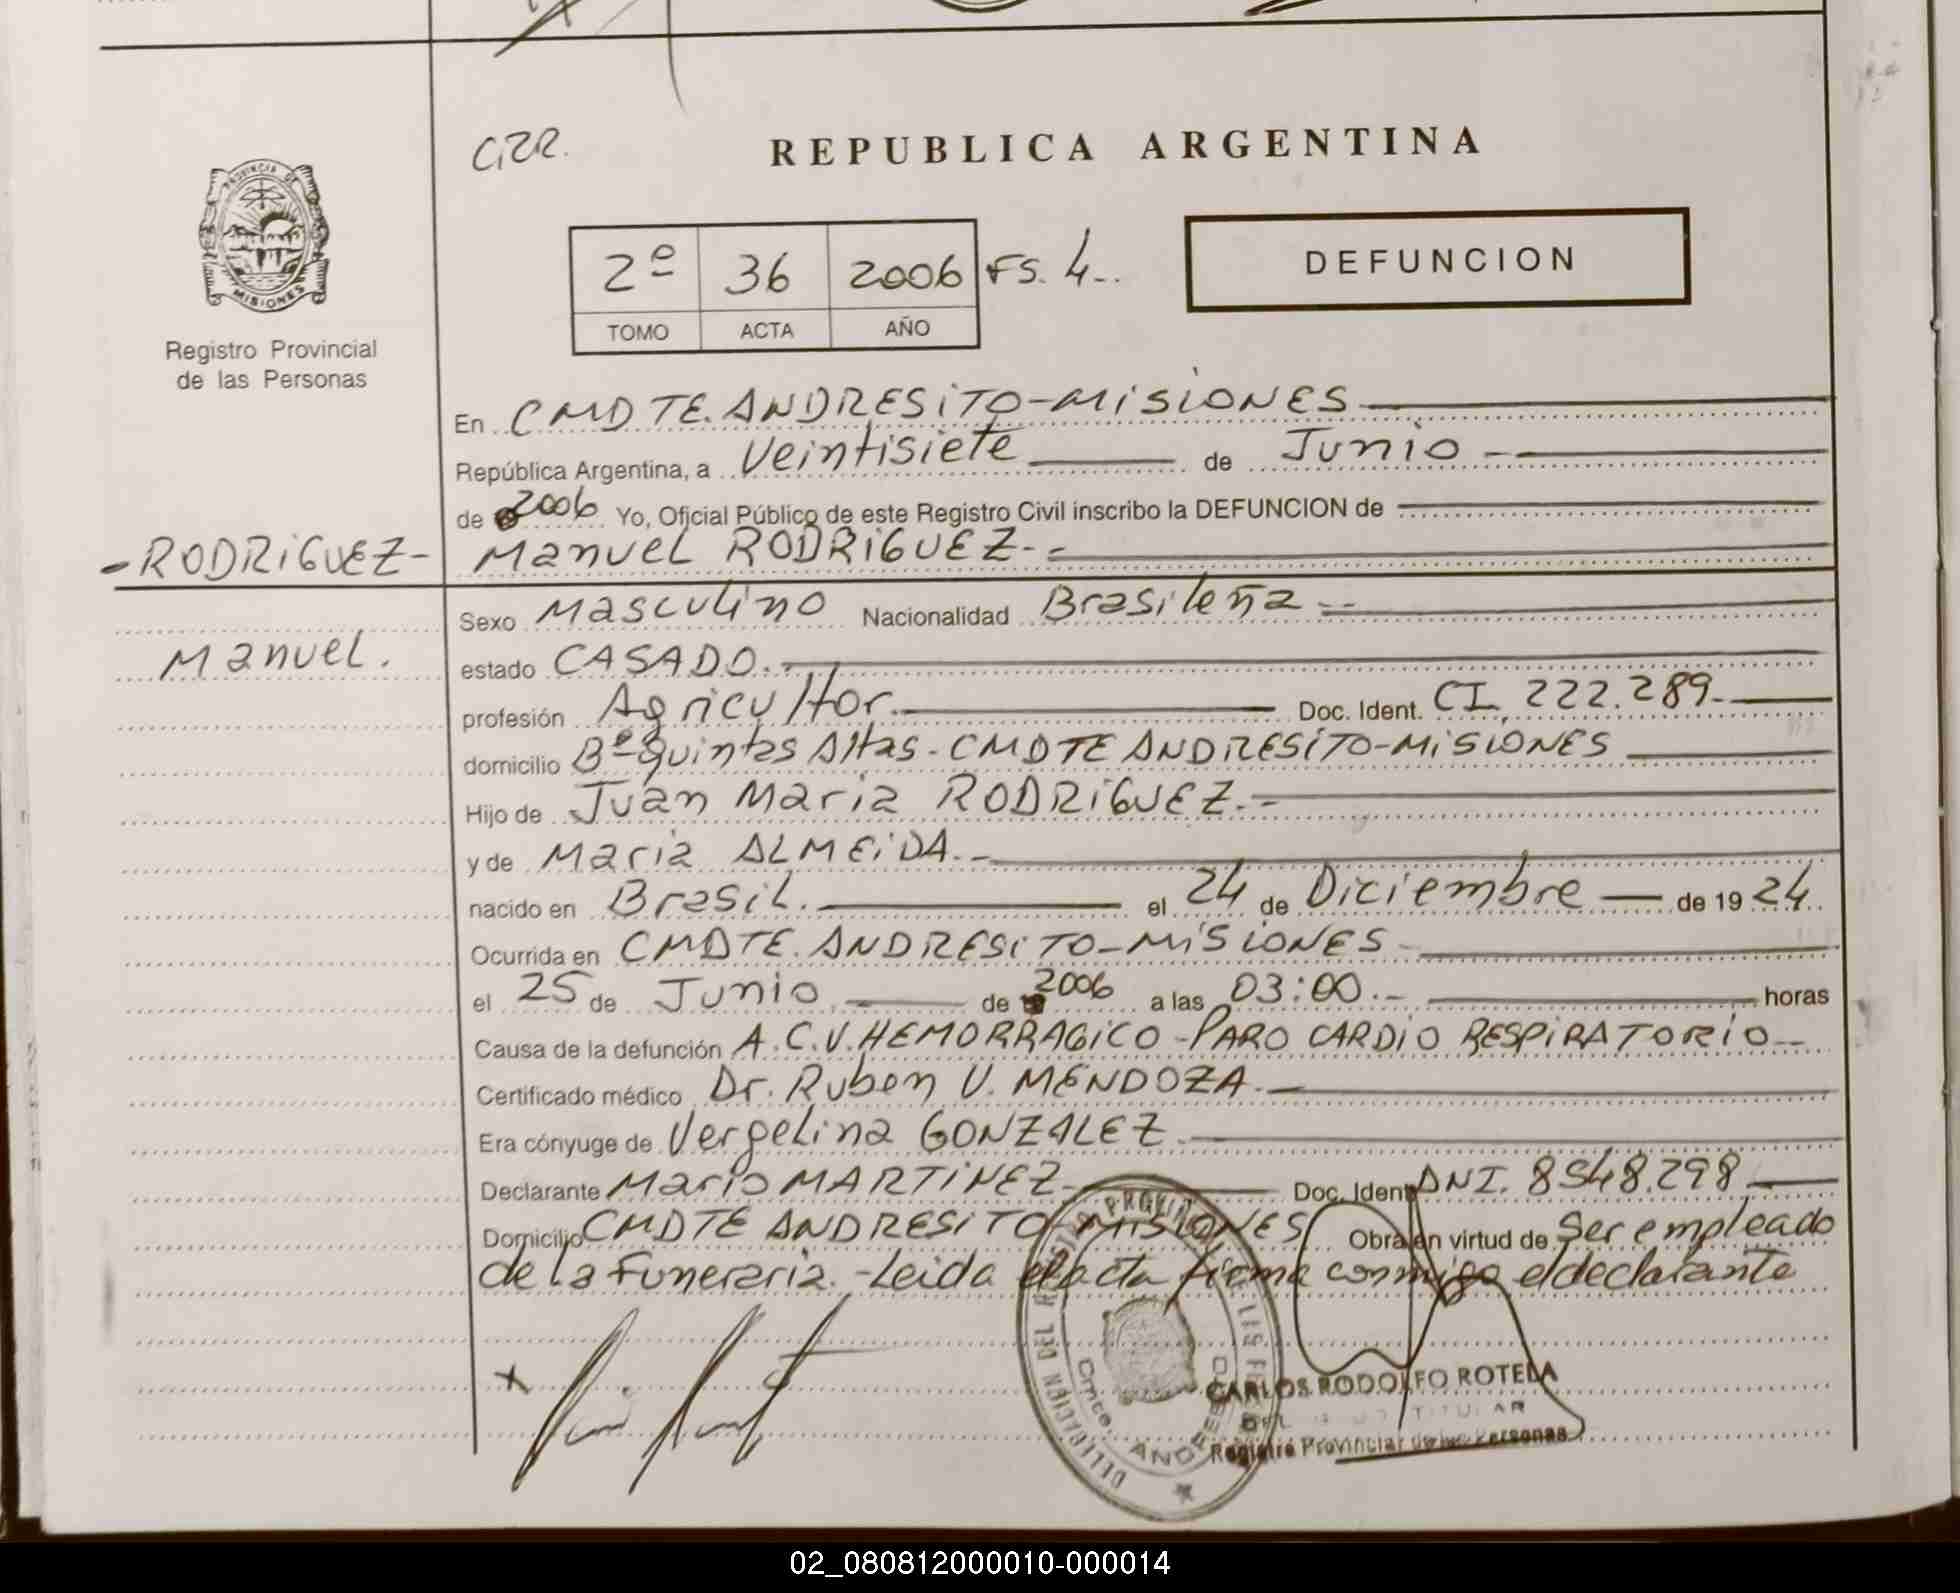 CZR.
REPUBLICA ARGENTINA
PROVINCIA DE
MISIONES
Registro Provincial
de las Personas
2º 36 2006 FS. 4..
TOMO ACTA AÑO
DEFUNCION
En CMDTE. ANDRESiTO-MiSiONES
República Argentina, a Veintisiete de Junio
de 2006 Yo, Oficial Público de este Registro Civil inscribo la DEFUNCION de
-RODRiGUEZ- Manuel RODRiGUEZ-
Manuel.
Sexo Masculino Nacionalidad Brasileña
estado CASADO.
profesión Agricultor Doc. Ident. CI. 222.289-
domicilio Bº Quintas Altas - CMDTE ANDRESiTO-MiSiONES
Hijo de Juan Maria RODRiGUEZ.-
y de Maria ALMEiDA.-
nacido en Brasil. el 24 de Diciembre de 1924
Ocurrida en CMDTE. ANDRESiTO-MiSiONES
el 25 de Junio de 2006 a las 03:00.- horas
Causa de la defunción A.C.V. HEMORRAGiCO - PARO CARDiO RESPiRATORiO
Certificado médico Dr. Ruben V. MENDOZA.
Era cónyuge de Vergelina GONZALEZ
Declarante Mario MARTiNEZ Doc. Ident. DNI. 8548.298
Domicilio CMDTE ANDRESiTO-MiSiONES Obra en virtud de Ser empleado
de la Funeraria.-Leida el acta firma conmigo el declarante
X
DELEGACION DEL
Cmte. ANDRESITO
CARLOS RODOLFO ROTELA
TITULAR
Registro Provincial de las Personas
02_080812000010-000014